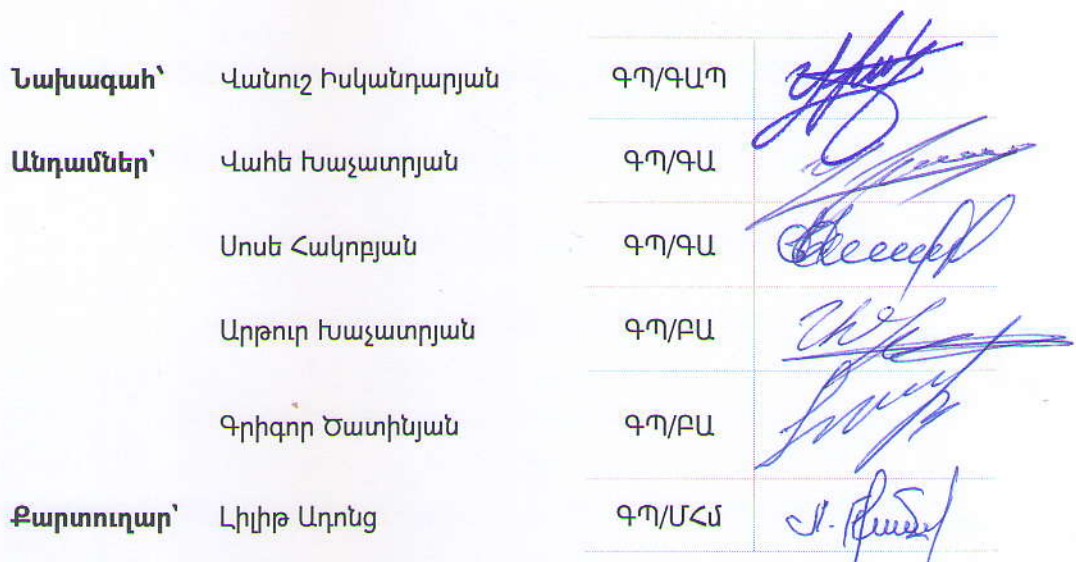 Նախագահ՝ Վանուշ Իսկանդարյան ԳՊ/ԳԱՊ
Անդամներ՝ Վահե Խաչատրյան ԳՊ/ԳԱ
Սոսե Հակոբյան ԳՊ/ԳԱ
Արթուր Խաչատրյան ԳՊ/ԲԱ
Գրիգոր Ծատինյան ԳՊ/ԲԱ
Քարտուղար՝ Լիլիթ Ադոնց ԳՊ/ՄՀմ